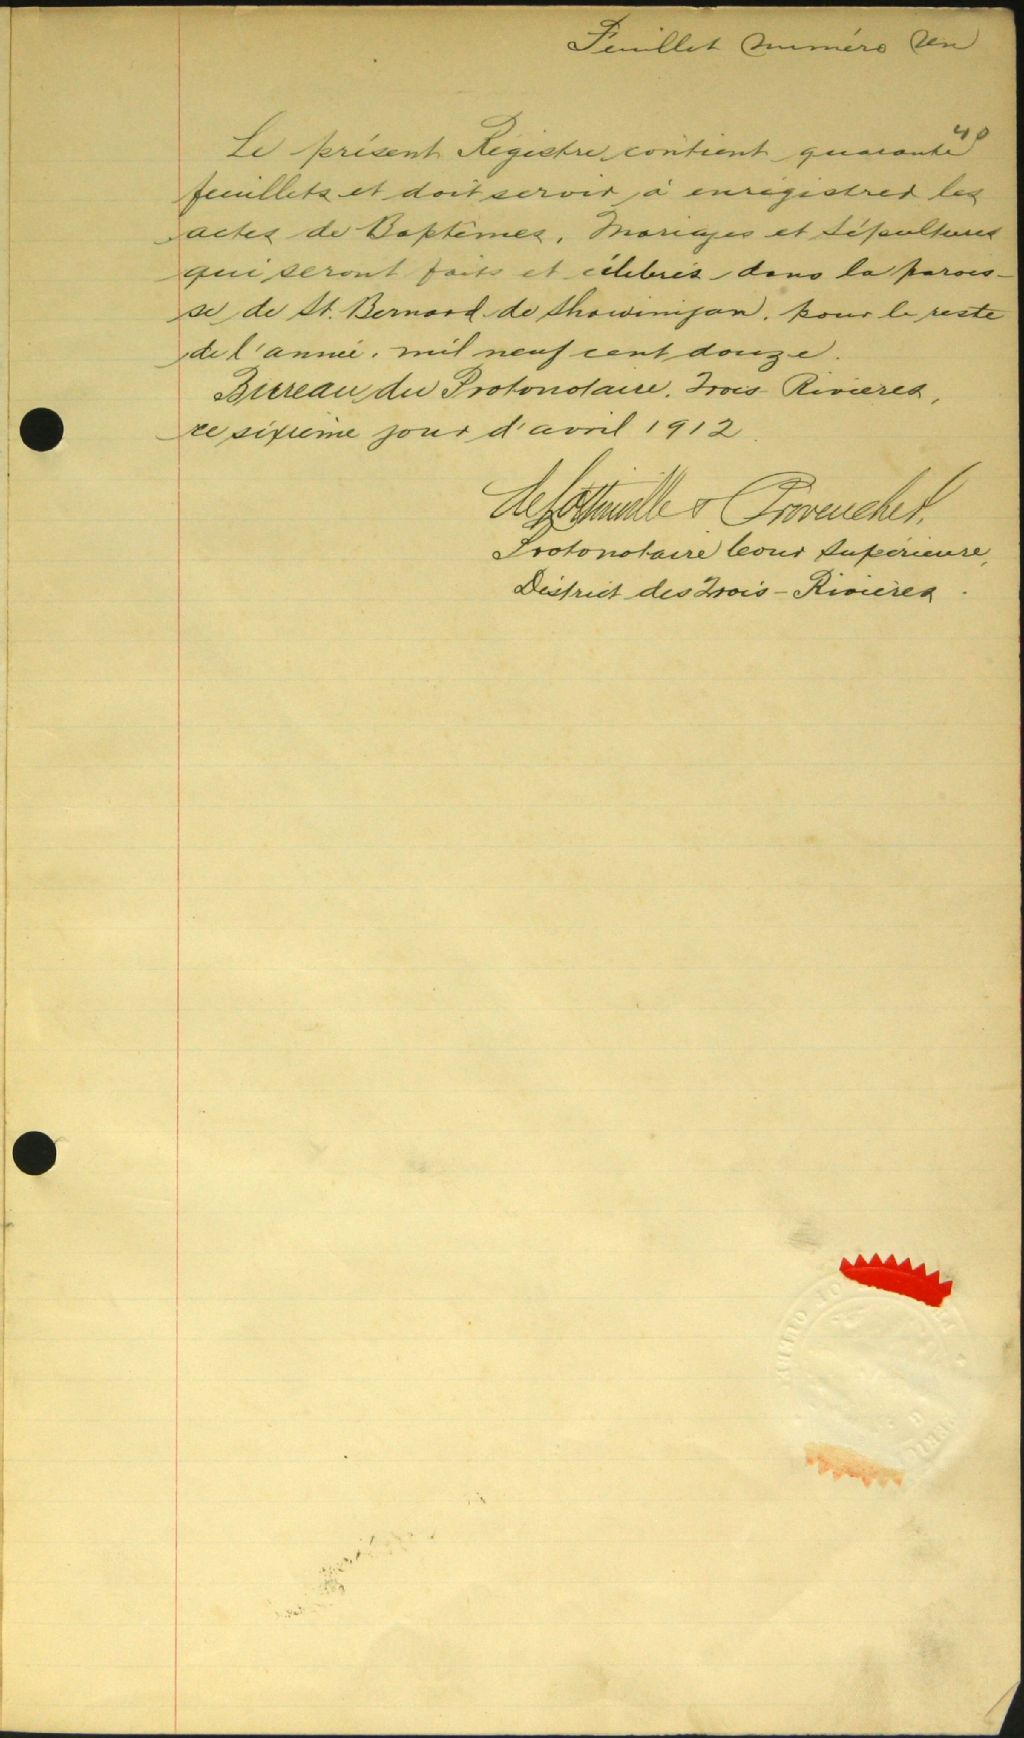 Feuillet numéro Un
40
Le présent Régistre contient quarante
feuillets et doit servir à enrégistrer les
actes de Baptêmes, Mariages et Sépultures
qui seront faits et célébrés dans la parois-
se de St. Bernard de Shawinigan, pour le reste
de l'année, mil neuf cent douze.
Bureau du Protonotaire, Trois Rivières,
ce sixième jour d'avril 1912.
de Lottinville & Provencher,
Protonotaire Cour Supérieure,
District des Trois-Rivières.